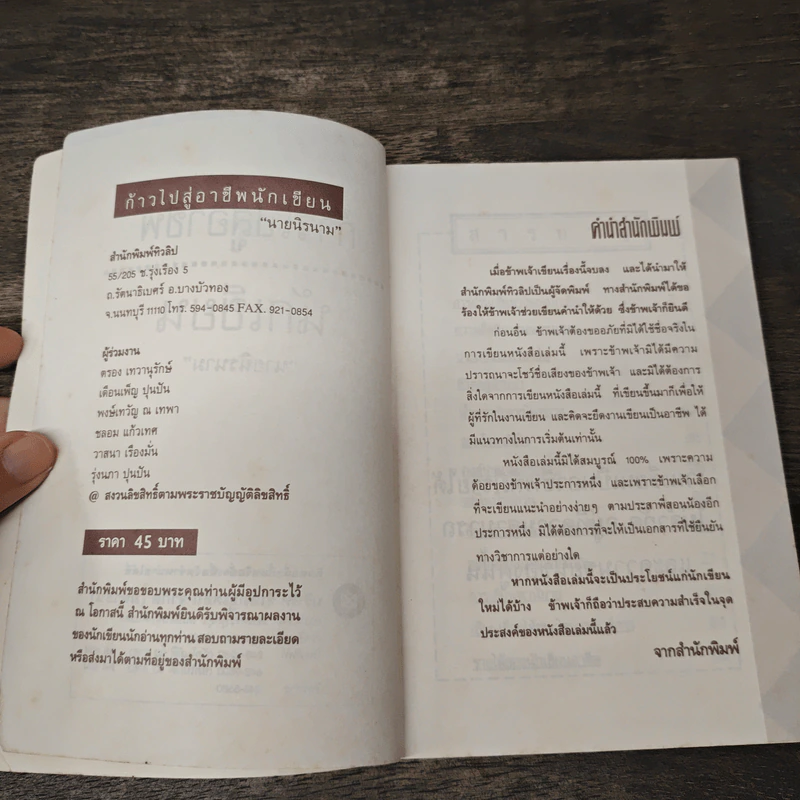 ก้าวไปสู่อาชีพนักเขียน
"นายนิรนาม"
สำนักพิมพ์ทิวลิป
55/205 ซ.รุ่งเรือง 5
ถ.รัตนาธิเบศร์ อ.บางบัวทอง
จ.นนทบุรี 11110 โทร. 594-0845 FAX. 921-0854
ผู้ร่วมงาน
ตรอง เทวานุรักษ์
เดือนเพ็ญ ปุนปัน
พงษ์เทวัญ ณ เทพา
ชลอม แก้วเทศ
วาสนา เรืองมั่น
รุ่งนภา ปุนปัน
@ สงวนลิขสิทธิ์ตามพระราชบัญญัติลิขสิทธิ์
ราคา 45 บาท
สำนักพิมพ์ขอขอบพระคุณท่านผู้มีอุปการะไว้
ณ โอกาสนี้ สำนักพิมพ์ยินดีรับพิจารณาผลงาน
ของนักเขียนนักอ่านทุกท่าน สอบถามรายละเอียด
หรือส่งมาได้ตามที่อยู่ของสำนักพิมพ์
คำนำสำนักพิมพ์
เมื่อข้าพเจ้าเขียนเรื่องนี้จบลง และได้นำมาให้
สำนักพิมพ์ทิวลิปเป็นผู้จัดพิมพ์ ทางสำนักพิมพ์ได้ขอ
ร้องให้ข้าพเจ้าช่วยเขียนคำนำให้ด้วย ซึ่งข้าพเจ้าก็ยินดี
ก่อนอื่น ข้าพเจ้าต้องขออภัยที่มิได้ใช้ชื่อจริงใน
การเขียนหนังสือเล่มนี้ เพราะข้าพเจ้ามิได้มีความ
ปรารถนาจะโชว์ชื่อเสียงของข้าพเจ้า และมิได้ต้องการ
สิ่งใดจากการเขียนหนังสือเล่มนี้ ที่เขียนขึ้นมาก็เพื่อให้
ผู้ที่รักในงานเขียน และคิดจะยึดงานเขียนเป็นอาชีพ ได้
มีแนวทางในการเริ่มต้นเท่านั้น
หนังสือเล่มนี้มิได้สมบูรณ์ 100% เพราะความ
ด้อยของข้าพเจ้าประการหนึ่ง และเพราะข้าพเจ้าเลือก
ที่จะเขียนแนะนำอย่างง่ายๆ ตามประสาพี่สอนน้องอีก
ประการหนึ่ง มิได้ต้องการที่จะให้เป็นเอกสารที่ใช้ยืนยัน
ทางวิชาการแต่อย่างใด
หากหนังสือเล่มนี้จะเป็นประโยชน์แก่นักเขียน
ใหม่ได้บ้าง ข้าพเจ้าก็ถือว่าประสบความสำเร็จในจุด
ประสงค์ของหนังสือเล่มนี้แล้ว
จากสำนักพิมพ์